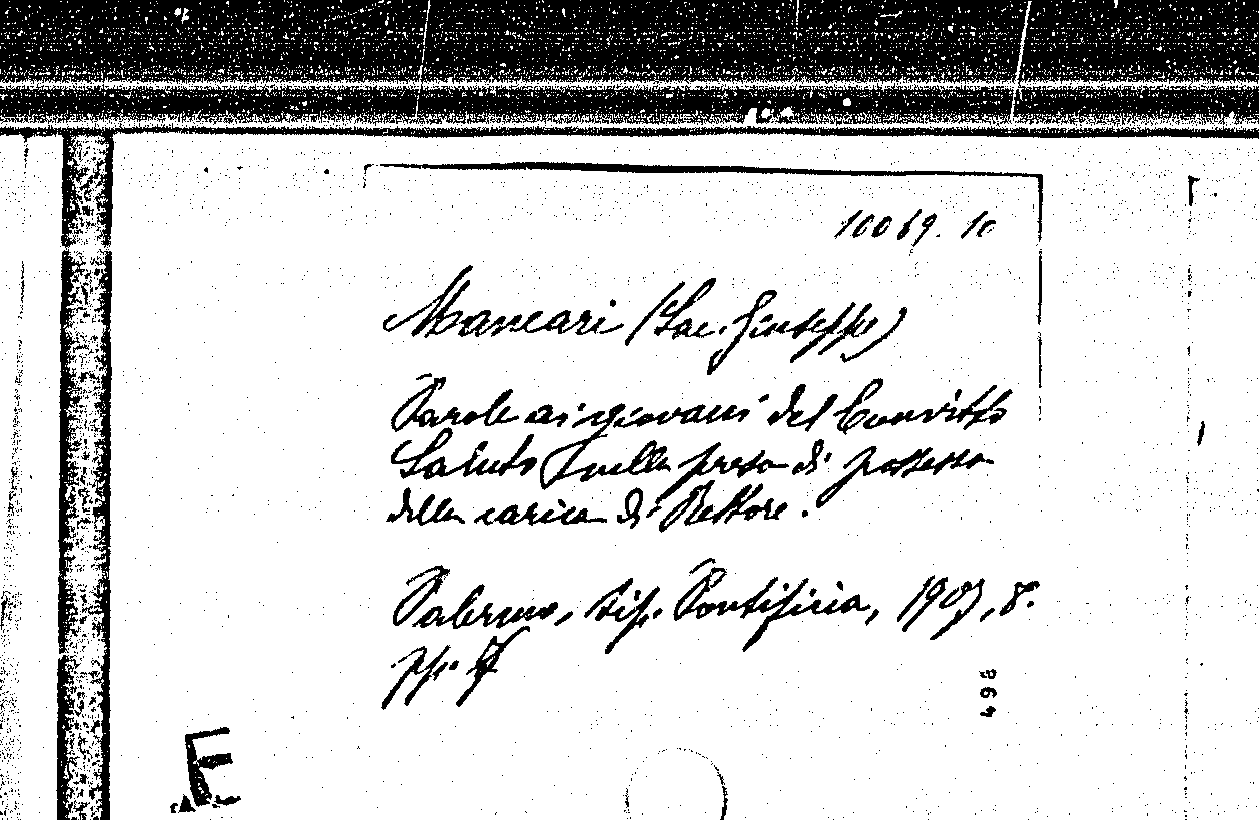 10069. 10
Mancari (Sac. Giuseppe)
Parole ai giovani del Convitto
Saluto nella presa di possesso
della carica di Rettore.
Palermo, tip. Pontificia, 1907, 8.
pp. 7
498
E